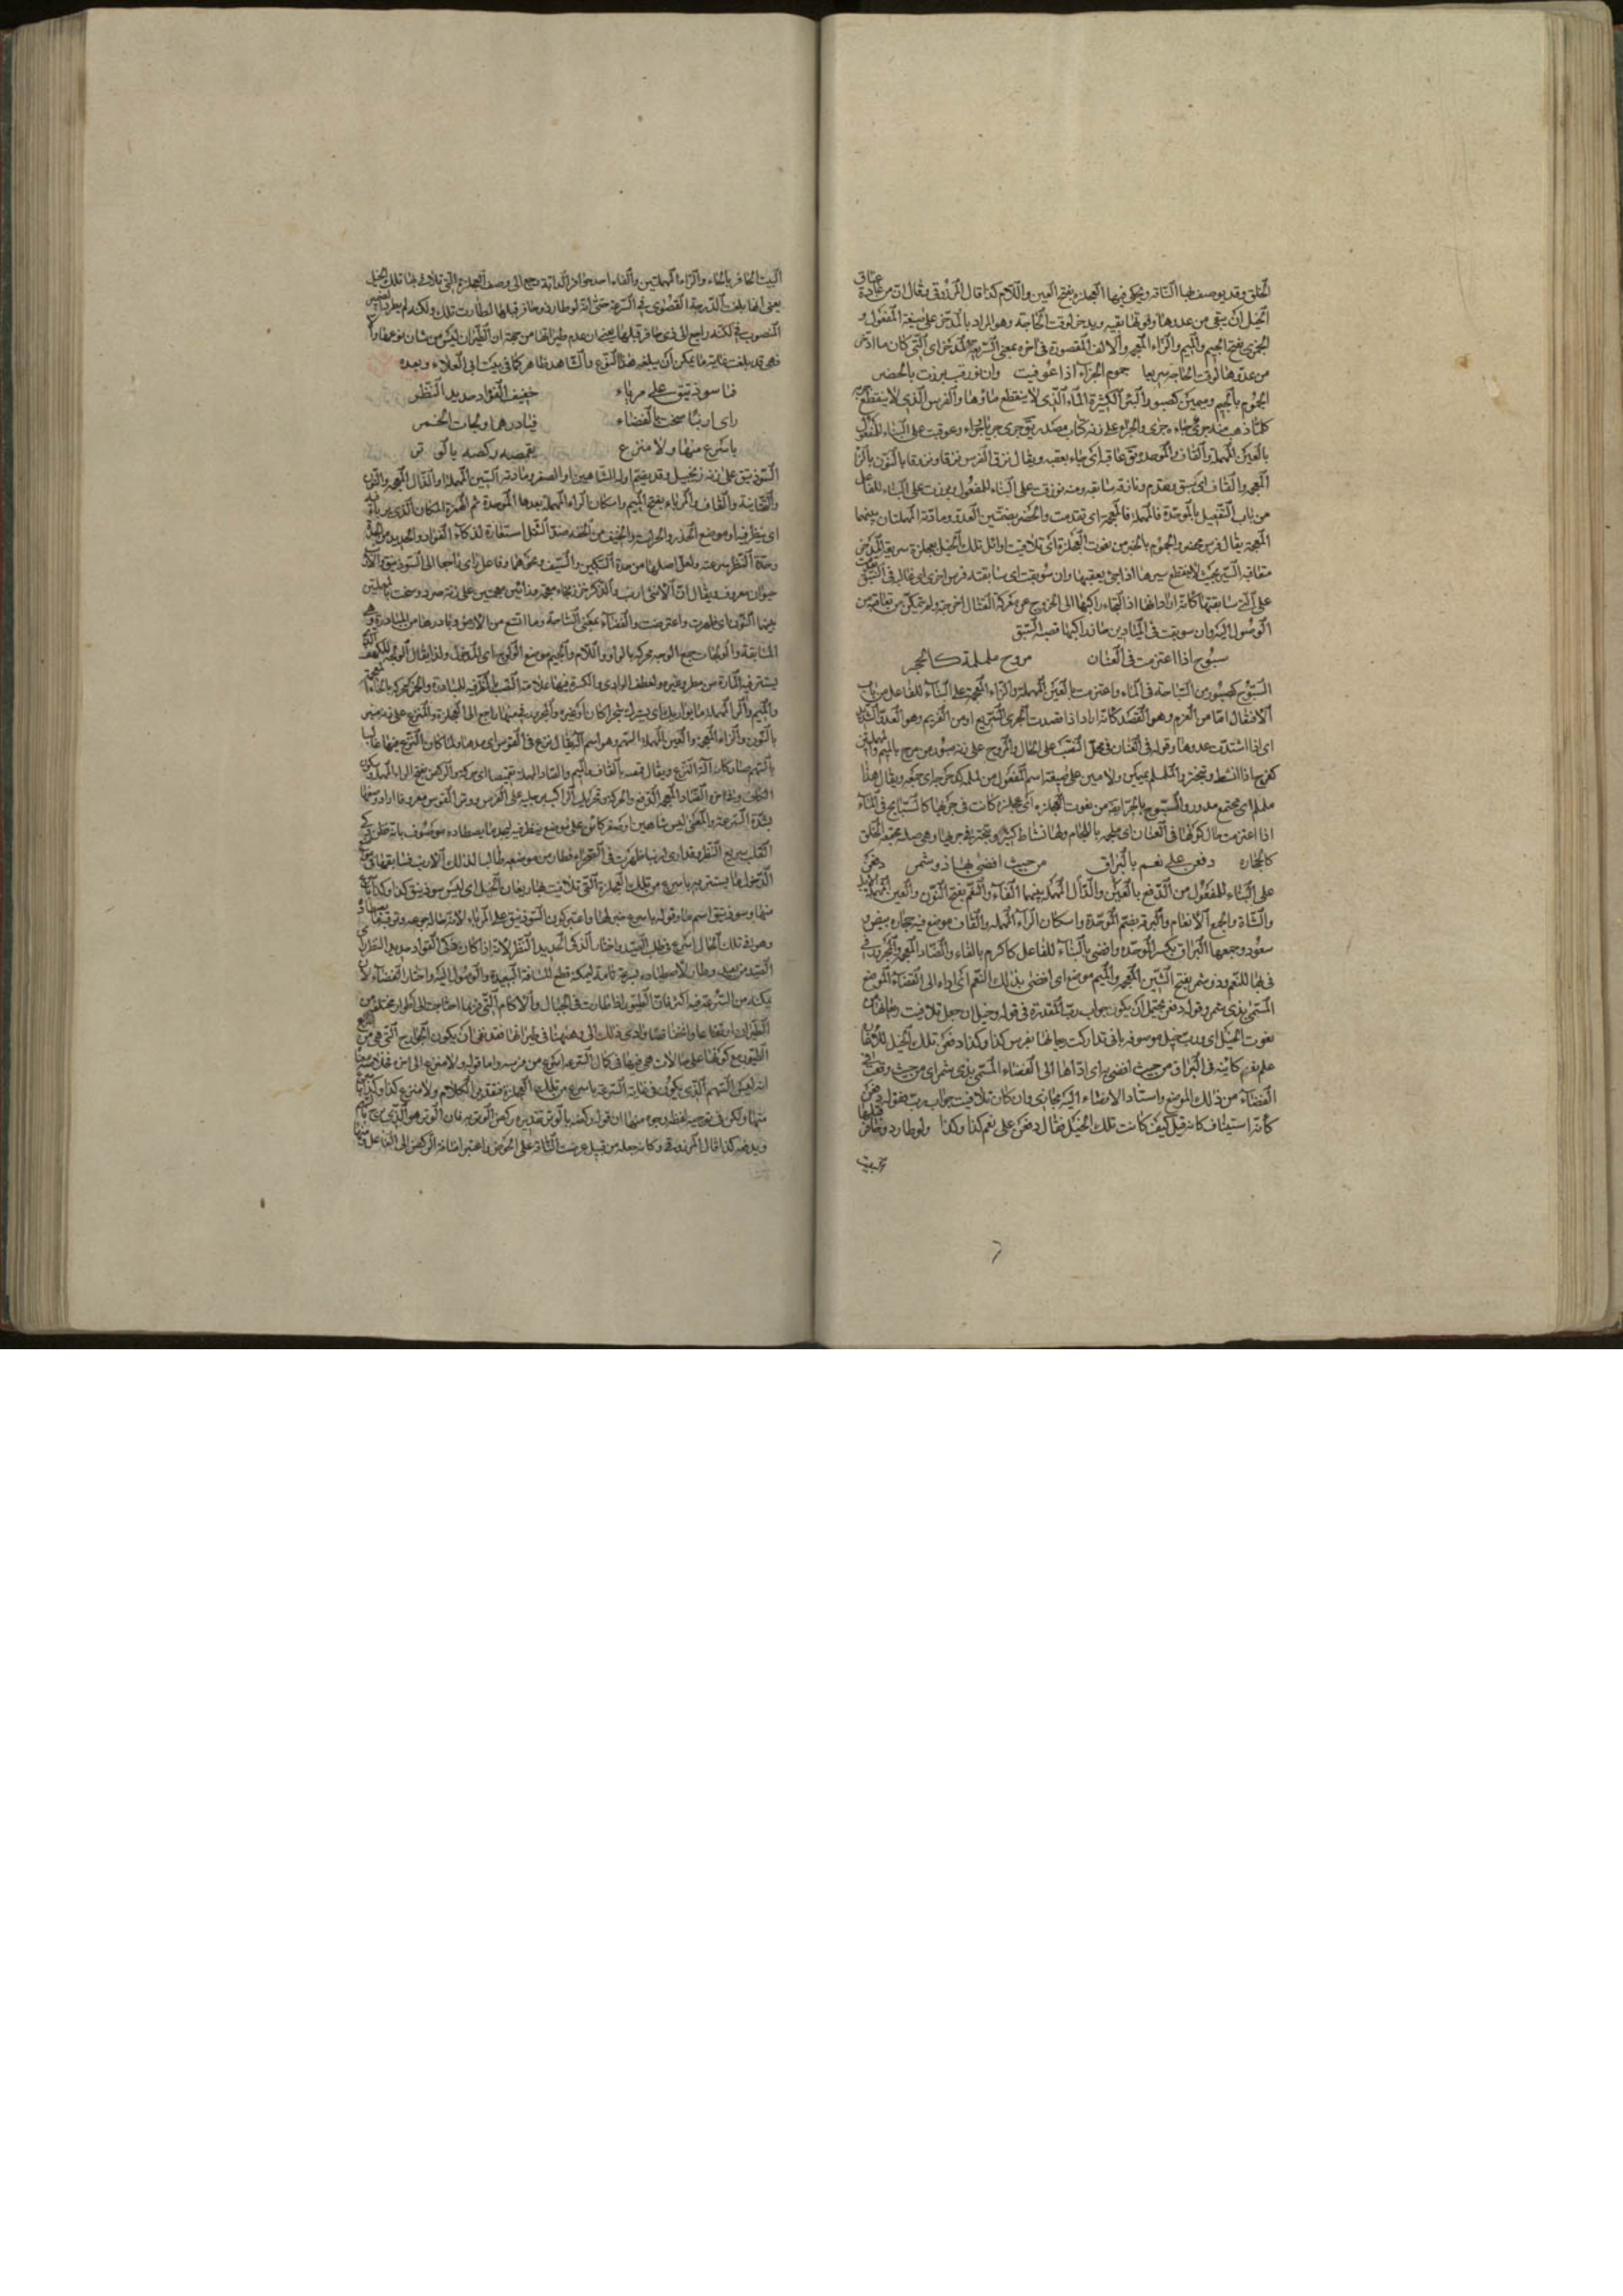 الخلق وقد يوصف بها الناقة ويحكى فيها العجلزة بفتح العين واللام كذا قال المرزوقي وقال ان من عادة عتاق
الخيل ان يبقى من عدوها وقوتها بقية ويدخر لوقت الحاجة وهو المراد بالمدخر على صيغة المفعول و
الجمزى بفتح الجيم والميم والزاء المعجمة والالف المقصورة في اخره بمعنى السريعة المدخر اى التي كان ما ادخر
من عدوها لوقت الحاجة سريعا جموم الجراء اذا عوقبت وان نوزقت برزت بالحضر
الجموم بالجيم وميمين كصبور البئر الكثيرة الماء الذى لا ينقطع ماؤها والفرس الذى لا ينقطع جريه
كلما ذهب منه جرى جاءه جرى والجراء على زنة كتاب مصدر يق جرى جريا وجراء وعوقبت على البناء للمفعول
بالعين المهملة والقاف والموحدة يق عاقبه اى جاء بعقبه ويقال نزق الفرس نزقا ونزوقا بالنون والزاء
المعجمة والقاف اى سبق وتقدم ونازقه سابقه ومنه نوزقت على البناء للمفعول وبرزت على البناء للفاعل
من باب التفعيل بالموحدة فالمهملة فالمعجمة اى تقدمت والحضر بضمتين العدو ومادته المهملتان بينهما
المعجمة يقال فرس محضر والجموم بالجر من نعوت العجلزة اى تلافيت اوائل تلك الخيل بعجلزة سريعة المدخر
متعاقبة السير بحيث لا ينقطع سيرها اذا جئ بعقبها وان سوبقت اى سابقته فرس اخرى اى غالبه في السبق
على التي سابقتها كانه اراد انها اذا الجاء راكبها الى الخروج عن معركة القتال اخرجته ولم يتمكن من تعاقبه من
الوصول اليه وان سوبقت في الميادين حاز راكبها قصب السبق
سبوح اذا اعتزمت في العنان مروح ململمة كالحجر
السبوح كصبور من السباحة في الماء واعتزمت بالعين المهملة والزاء المعجمة على البناء للفاعل من باب
الافتعال امّا من العزم وهو القصد كانه اراد اذا قصدت الجرى السريع او من العزيم وهو العدو الشديد
اى اذا اشتدت عدوها وقوله في العنان في محل النصب على الحال والمروح على زنة صبور من مرح بالميم والمهملتين
كفرح اذا انشط وتبختر والململم بميمين ولامين على صيغة اسم المفعول من لملمه كدحرجه اى جمعه ويقال هذا
ململم اى مجتمع مدور والسبوح بالجر ايضا من نعوت العجلزة اى عجلزة كانت في جريها كالسابح في الماء
اذا اعتزمت حال كونها في العنان اى ملجمة باللجام ولها نشاط كثير وتبختر في جريها وهي صلبة مجتمعة الخلق
كالحجارة دفعن على نعم بالبراق من حيث افضى بها ذو شمر دفعن
على البناء للمفعول من الدفع بالعين والدال المهملة بينهما الفاء والنعم بفتح النون والعين المهملة الابل
والشاة والجمع الانعام والبرقة بضم الموحدة واسكان الراء المهملة والقاف موضع فيه حجارة بيض و
سعود وجمعها البراق بكسر الموحدة وافضى بالبناء للفاعل كاكرم بالفاء والضاد المعجمة والمجرور في
في لها للنعم وذو شمر بفتح الشين المعجمة والميم موضع اى افضى بذلك النعم اى اداه الى الفضاء الموضع
المسمى بذى شمر وقوله دفعن يحتمل ان يكون جواب رب المقدرة في قوله وخيل ان جعل تلافيت وما بعدها من
نعوت الخيل اى ورب خيل موصوفة بانى تداركت ريعانها بفرس كذا وكذا دفعن تلك الخيل
على نعم كائنة في البراق من حيث افضى بها اى اداها الى الفضاء المسمى بذى شمر اى من حيث وقعت في
الفضاء من ذلك الموضع واسناد الافضاء اليه مجازى وان كان تلافيت جواب رب فقوله دفعن
كانه استيناف كانه قيل كيف كانت تلك الخيل فقال دفعن على نعم كذا وكذا ولو طار ذو حافر قبلها
البيت الحافر بالحاء والراء المهملتين والفاء احد حوافر الدابة رجع الى وصف العجلزة التي تلافى بها تلك الخيل
يعنى انها بلغت الدرجة القصوى في السرعة حتى انه لو طار ذو حافر قبلها لطارت تلك ولكنه لم يطر والضمير
المنصوب في لكنه راجع الى ذى حافر قبلها يعنى ان عدم طيرانها من جهة ان الطيران ليس من شان نوعها والا
فهى قد بلغت غاية ما يمكن ان يبلغه هذا النوع والشاهد ظاهر كما في بيت ابى العلاء وبعده
فما سوذنيق على مرباء خفيف الفؤاد حديد النظر
راى ارنبا سنحت بالفضاء فبادرها ولجات الخمر
باسرع منها ولا منزع يقمصه ركضه بالوتر
السوذنيق على زنة زنجبيل وقد يضم اوله الشاهين او الصقر ومادته السين المهملة والذال المعجمة والنون
والتحتانية والقاف والمرباء بفتح الميم واسكان الراء المهملة بعدها الموحدة ثم الهمزة المكان الذى يربأ فيه
اى ينظر فيه او موضع الحذر والحراسة والخفيف من الخفة ضد الثقل استعارة لذكاء الفؤاد والحديد من الحدة
وحدة النظر سرعته ولعل اصلها من حدة السكين والسيف ونحوهما وفاعل راى راجعا الى السوذنيق والارنب
حيوان معروف ويقال انّ الانثى ارنب والذكر خزز بخاء معجمة وزائين معجمتين على زنة صرد وسنحت بالمهملتين
بينهما النون اى ظهرت واعترضت والفضاء بمعنى الساحة وما اتسع من الارض وبادرها من المبادرة وهى
المسابقة والولجات جمع الولجة محركة بالواو واللام والجيم موضع الولوج اى الدخول ولذا يقال الولجة للكهف الذى
يستتر فيه المارة من مطر وغيره ولعطف الوادى والكسرة فيها علامة النصب بالظرفية للمبادرة والخمر محركة بالخاء المعجمة
والميم والراء المهملة ما يواريك اى يسترك شجرا كان او غيره والمجرور في منها راجع الى العجلزة والمنزع على زنة منبر
بالنون والزاء المعجمة والعين المهملة السهم وهو اسم الة يقال نزع في القوس اى مدها ولما كان النزع فيها غالبا
بالسهم صار كانه آلة النزع ويقال قمصه بالقاف والميم والصاد المهملة تقميصا اى حركه والركض بفتح الراء المهملة وسكون
الكاف وفي اخره الضاد المعجمة الدفع والحركة وتحريك الراكب رجليه على الفرس ووتر القوس معروف اراد وصفها
بشدة السرعة والمعنى ليس شاهين او صقر كائن على موضع ينظر فيه ليجد ما يصطاده موصوف بانه ذكى
القلب سريع النظر وقد راى ارنبا ظهرت في الصحراء فطار من موضعه طالبا لذلك الارنب فسابقها
منها وسوذنيق اسم ما وقوله باسرع خبر لها واعتبر كون السوذنيق على المرباء لانه حالة جوعه
وهو في تلك الحال اسرع في طلب الصيد واختار الذكى الحديد النظر لانه اذا كان ذكى الفؤاد حديد النظر راى
الصيد من بعيد وطار لاصطياده بسرعة تامة ليمكنه قطع المسافة البعيدة والوصول اليه واختار الفضاء لانه
يمكنه من السرعة فيه اكثر فان الطيور اذا طارت في الجبال والاكام التي ربما احتاجت الى اطوار مختلفة من
الطيران ارتفاعا وانخفاضا
الطيور مع كونها على حالات هي فيها في كمال السرعة اسرع من فرسه واما قوله ولا منزع الى اخره
انه ليس السهم الذى يكون في غاية السرعة باسرع من تلك العجلزة فتقدير الكلام ولا منزع كذا وكذا باسرع
منها ولكن في توجيه لفظه وجوه منها ان قوله ركضه بالوتر تقديره ركض الوتر به فان الوتر هو الذى يرمى بالسهم
ويدفعه كذا قال المرزوقي وكانه جعله من قبيل عرضت الناقة على الحوض واعتبر اضافة الركض الى الفاعل